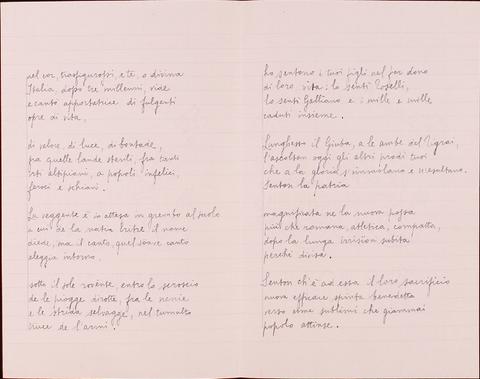 nel cor, trasfigurossi, e te, o divina
Italia, dopo tre millenni, vide
e canto apportatrice di fulgenti
opre di vita,
di valore, di luce, di bontade,
fra quelle lande sterili, fra tanti
irti altipiani, a popoli infelici,
feroci e schiavi.
La reggente è in attesa in grembo al suolo
a cui de la natia
diede, ma il canto, quel soave canto
aleggia intorno,
sotto il sole rovente, entro lo scroscio
de le piogge dirotte, fra le nenie
e le strida selvagge, nel tumulto
truce de l'armi.
ho, sentono i tuoi figli nel far dono
di loro vita: lo sentì Toselli,
lo sentì Galliano e i mille e mille
caduti insieme.
Lunghesso il Giuba, a le ambe del Tigrai,
l'ascoltan oggi gli altri prodi tuoi
che a la gloria s'immolano e
Senton la patria
magnificata ne la nuova possa
più che romana, atletica, compatta,
dopo la lunga irrision subita
perché divisa.
Senton ch'è ad essa il loro sacrificio
nuova efficace spinta benedetta
verso etme sublimi che giammai
popolo attinse.